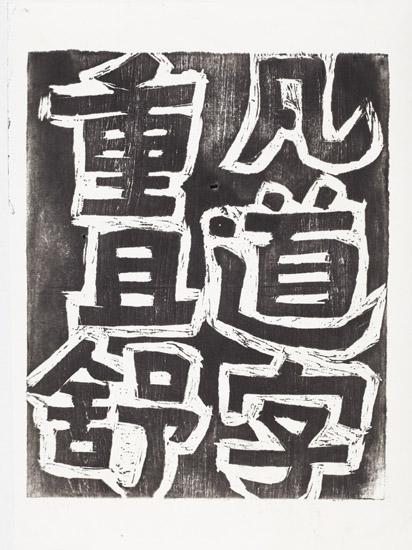 凡道字
重且舒